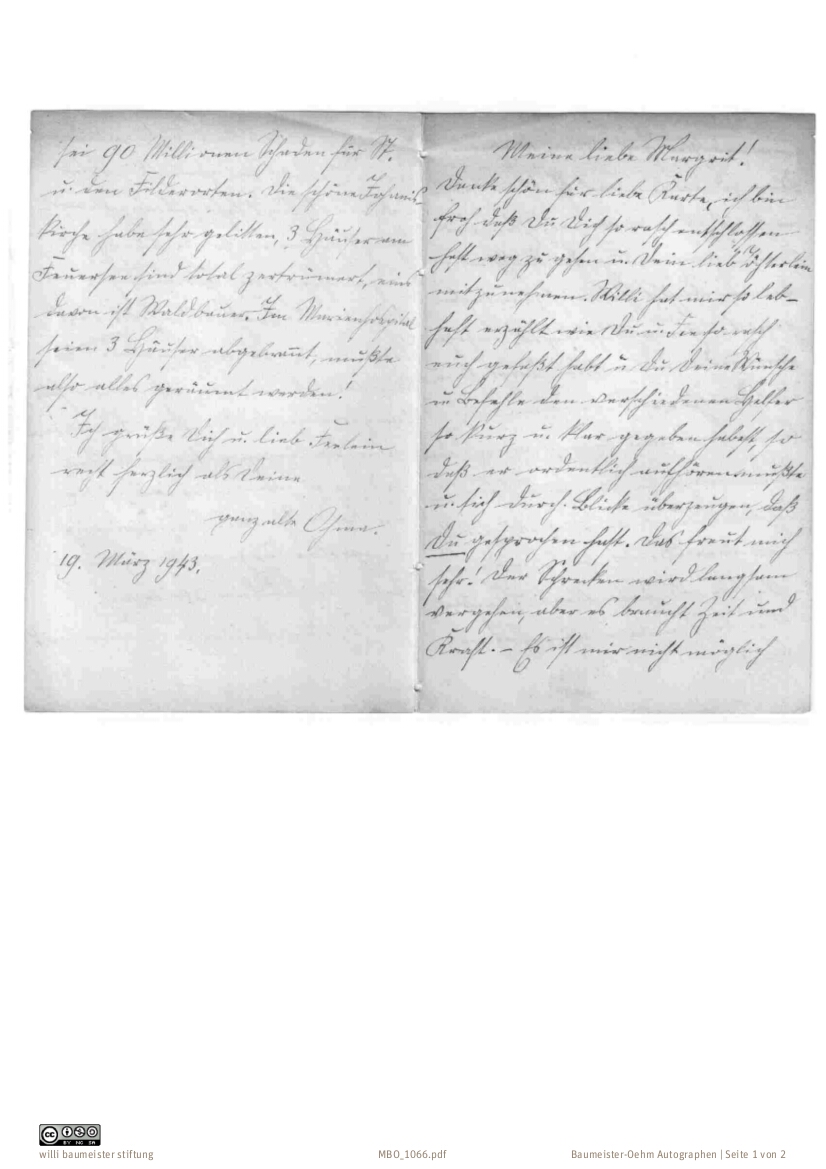 Meine liebe Margrit!
Danke schön für liebe Karte, ich bin
froh daß Du Dich so rasch entschlossen
hast weg zu gehen u. Dein lieb
mitzunehmen. Willi hat mir so leb-
haft erzählt wie Du u. so rasch
euch gefaßt habt u Du Deine Wünsche
u Befehle den verschiedenen Helfer
so kurz u. klar gegeben habest, so
daß er ordentlich aufhören mußte
u. sich durch Blicke überzeugen, daß
Du gesprochen hast. Das freut mich
sehr! Der Schrecken wird langsam
vergehen, aber es braucht Zeit und
Kraft. – Es ist mir nicht möglich
sei 90 Millionen Schaden für St.
u. den Filderorten. Die schöne Johannis-
kirche habe sehr gelitten, 3 Häuser am
Feuersee sind total zertrümert, eins
davon ist Waldbauer. Im Marienhospital
seien 3 Häuser abgebrannt, mußte
also alles geräumt werden!
Ich grüße Dich u. lieb
recht herzlich als Deine
ganz alte Ohma.
19. März 1943.
willi baumeister stiftung
MBO_1066.pdf
Baumeister-Oehm Autographen | Seite 1 von 2
CC BY NC SA